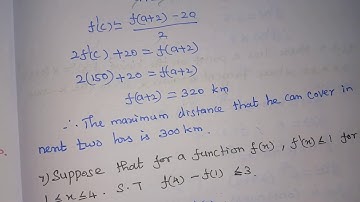 f'(c) = f(a+2) - 20 / 2
2f'(c) + 20 = f(a+2)
2(150) + 20 = f(a+2)
f(a+2) = 320 km
∴ The maximum distance that he can cover in
next two hrs is 300 km.
7) Suppose that for a function f(x), f'(x) ≤ 1 for
1 ≤ x ≤ 4. S.T f(4) - f(1) ≤ 3.